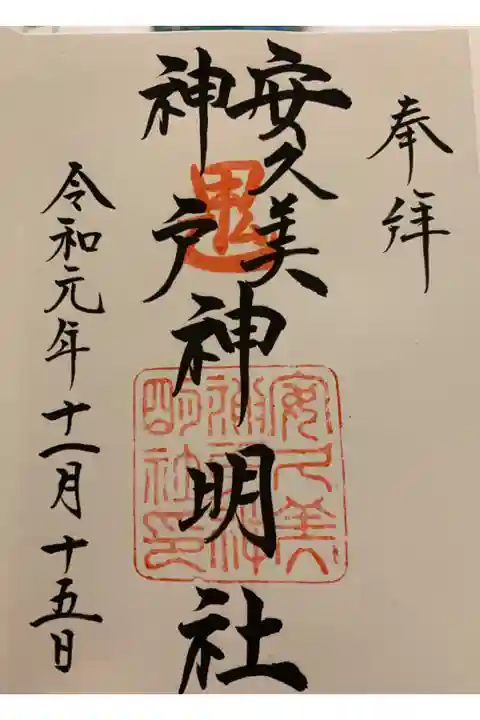 奉拝
安久美
神戸
神明社
令和元年十一月十五日
安久美
神戸神
明社印